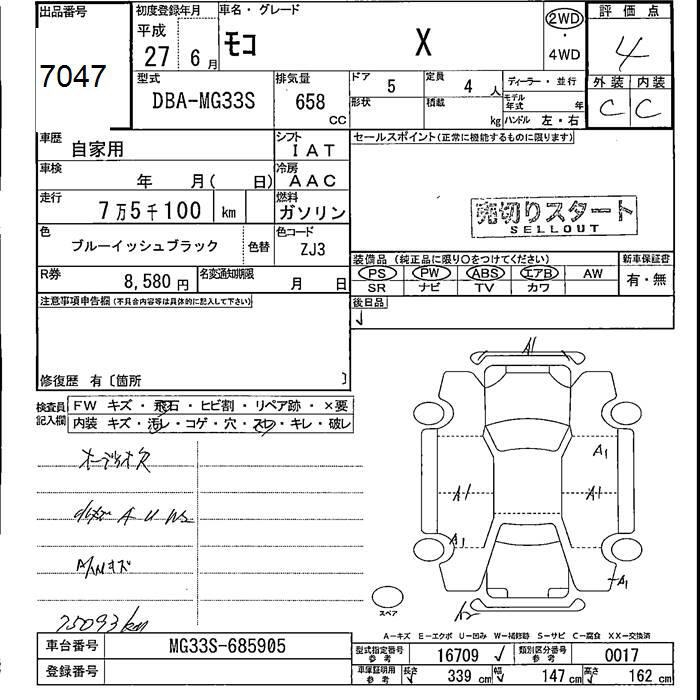 出品番号 初度登録年月 車名・グレード 評価点
7047 平成 27 6月 モコ X 2WD・4WD 4
型式 排気量 ドア 定員 ディーラー・並行 外装 内装
DBA-MG33S 658 CC 5 4人 C C
形状 積載 kg モデル年式 年 ハンドル 左・右
車歴 自家用 シフト IAT セールスポイント(正常に機能するものに限ります)
車検 年 月( 日) 冷房 AAC
走行 7万5千100 km 燃料 ガソリン
売切りスタート
SELLOUT
色 ブルーイッシュブラック 色替 色コード ZJ3
装備品(純正品に限り○をつけてください) 新車保証書
R券 8,580円 名変通知期限 月 日 PS PW ABS エアB AW 有・無
SR ナビ TV カワ
注意事項申告欄(不具合内容等は具体的に記入して下さい) 後日品
✓
修復歴 有〔箇所 〕
検査員記入欄 FW キズ・飛石・ヒビ割・リペア跡・×要
内装 キズ・汚レ・コゲ・穴・スレ・キレ・破レ
A1
オーディオ欠 A1
A1 A1
A U
A1
A1
75093km
スペア
A-キズ E-エクボ U-凹み W-補修跡 S-サビ C-腐食 XX-交換済
車台番号 MG33S-685905 型式指定番号 参考 16709 ✓ 類別区分番号 参考 0017
登録番号 車庫証明用 参考 長さ 339cm 幅 147cm 高さ 162cm